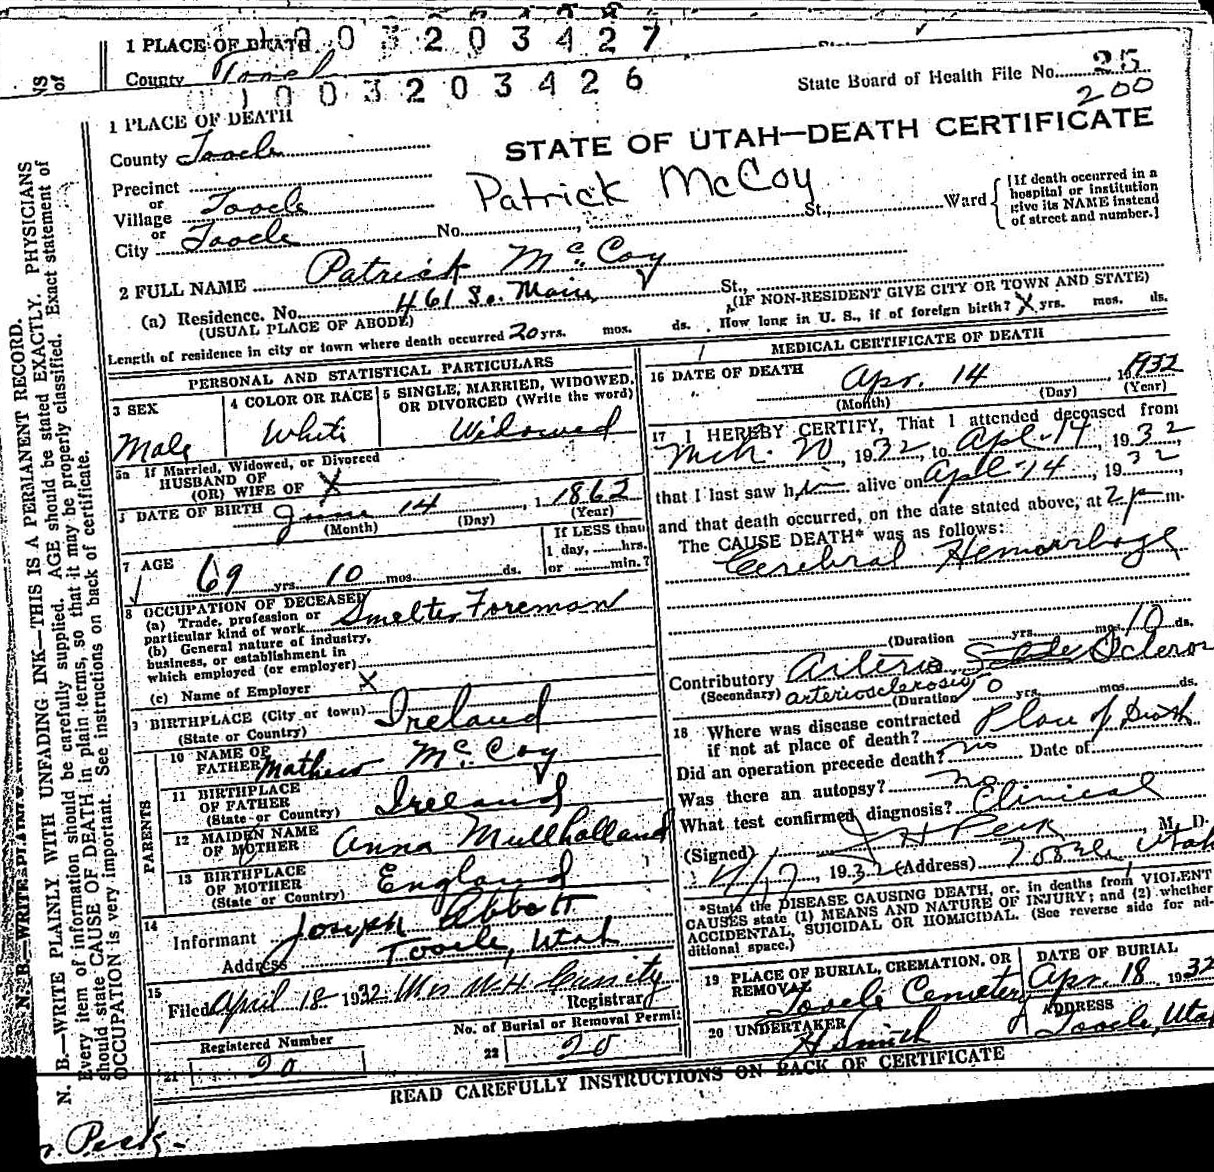 1 PLACE OF DEATH
1003203427
County Tooele
1003203426
State Board of Health File No. 25
200
1 PLACE OF DEATH
County Tooele
STATE OF UTAH—DEATH CERTIFICATE
Precinct
or
Village Tooele
or
City Tooele
Patrick McCoy
No. St., Ward
[If death occurred in a
hospital or institution
give its NAME instead
of street and number.]
2 FULL NAME Patrick McCoy
(a) Residence. No. 461 So. Main St.,
(USUAL PLACE OF ABODE)
(IF NON-RESIDENT GIVE CITY OR TOWN AND STATE)
Length of residence in city or town where death occurred 20 yrs. mos. ds. How long in U. S., if of foreign birth? X yrs. mos. ds.
PERSONAL AND STATISTICAL PARTICULARS
3 SEX
Male
4 COLOR OR RACE
White
5 SINGLE, MARRIED, WIDOWED,
OR DIVORCED (Write the word)
Widowed
5a If Married, Widowed, or Divorced
HUSBAND OF
(OR) WIFE OF X
DATE OF BIRTH June 14, 1862
(Month) (Day) (Year)
7 AGE
69 yrs. 10 mos. ds.
If LESS than
1 day, hrs.
or min.?
8 OCCUPATION OF DECEASED
(a) Trade, profession or
particular kind of work Smelter Foreman
(b) General nature of industry,
business, or establishment in
which employed (or employer)
(c) Name of Employer X
9 BIRTHPLACE (City or town) Ireland
(State or Country)
PARENTS
10 NAME OF
FATHER Mathew McCoy
11 BIRTHPLACE
OF FATHER
(State or Country) Ireland
12 MAIDEN NAME
OF MOTHER Anna Mullholland
13 BIRTHPLACE
OF MOTHER
(State or Country) England
14
Informant Joseph Abbott
Address Tooele, Utah
15
Filed April 18 1932 Mrs W H
Registrar
Registered Number
21 20
No. of Burial or Removal Permit
22 20
MEDICAL CERTIFICATE OF DEATH
16 DATE OF DEATH
Apr. 14, 1932
(Month) (Day) (Year)
17 I HEREBY CERTIFY, That I attended deceased from
Mch. 20, 1932, to Apl-14, 1932,
that I last saw him alive on Apl-14, 1932,
and that death occurred, on the date stated above, at 2 p m.
The CAUSE DEATH* was as follows:
Cerebral Hemorrhage
(Duration yrs. mos. 10 ds.
Contributory Arterio Scleros
(Secondary) arteriosclerosis
(Duration yrs. mos. ds.
18 Where was disease contracted
if not at place of death? Place of Death
Did an operation precede death? no Date of
Was there an autopsy? no
What test confirmed diagnosis? Clinical
(Signed) J H Peck, M. D.
4/17, 1932 (Address) Tooele, Utah
*State the DISEASE CAUSING DEATH, or, in deaths from VIOLENT
CAUSES state (1) MEANS AND NATURE OF INJURY; and (2) whether
ACCIDENTAL, SUICIDAL OR HOMICIDAL. (See reverse side for ad-
ditional space.)
19 PLACE OF BURIAL, CREMATION, OR
REMOVAL
Tooele Cemetery
DATE OF BURIAL
Apr. 18, 1932
20 UNDERTAKER
H Smith
ADDRESS
Tooele, Utah
READ CAREFULLY INSTRUCTIONS ON BACK OF CERTIFICATE
N. B.—WRITE PLAINLY WITH UNFADING INK—THIS IS A PERMANENT RECORD.
Every item of information should be carefully supplied. AGE should be stated EXACTLY. PHYSICIANS
should state CAUSE OF DEATH in plain terms, so that it may be properly classified. Exact statement of
OCCUPATION is very important. See instructions on back of certificate.
Peck